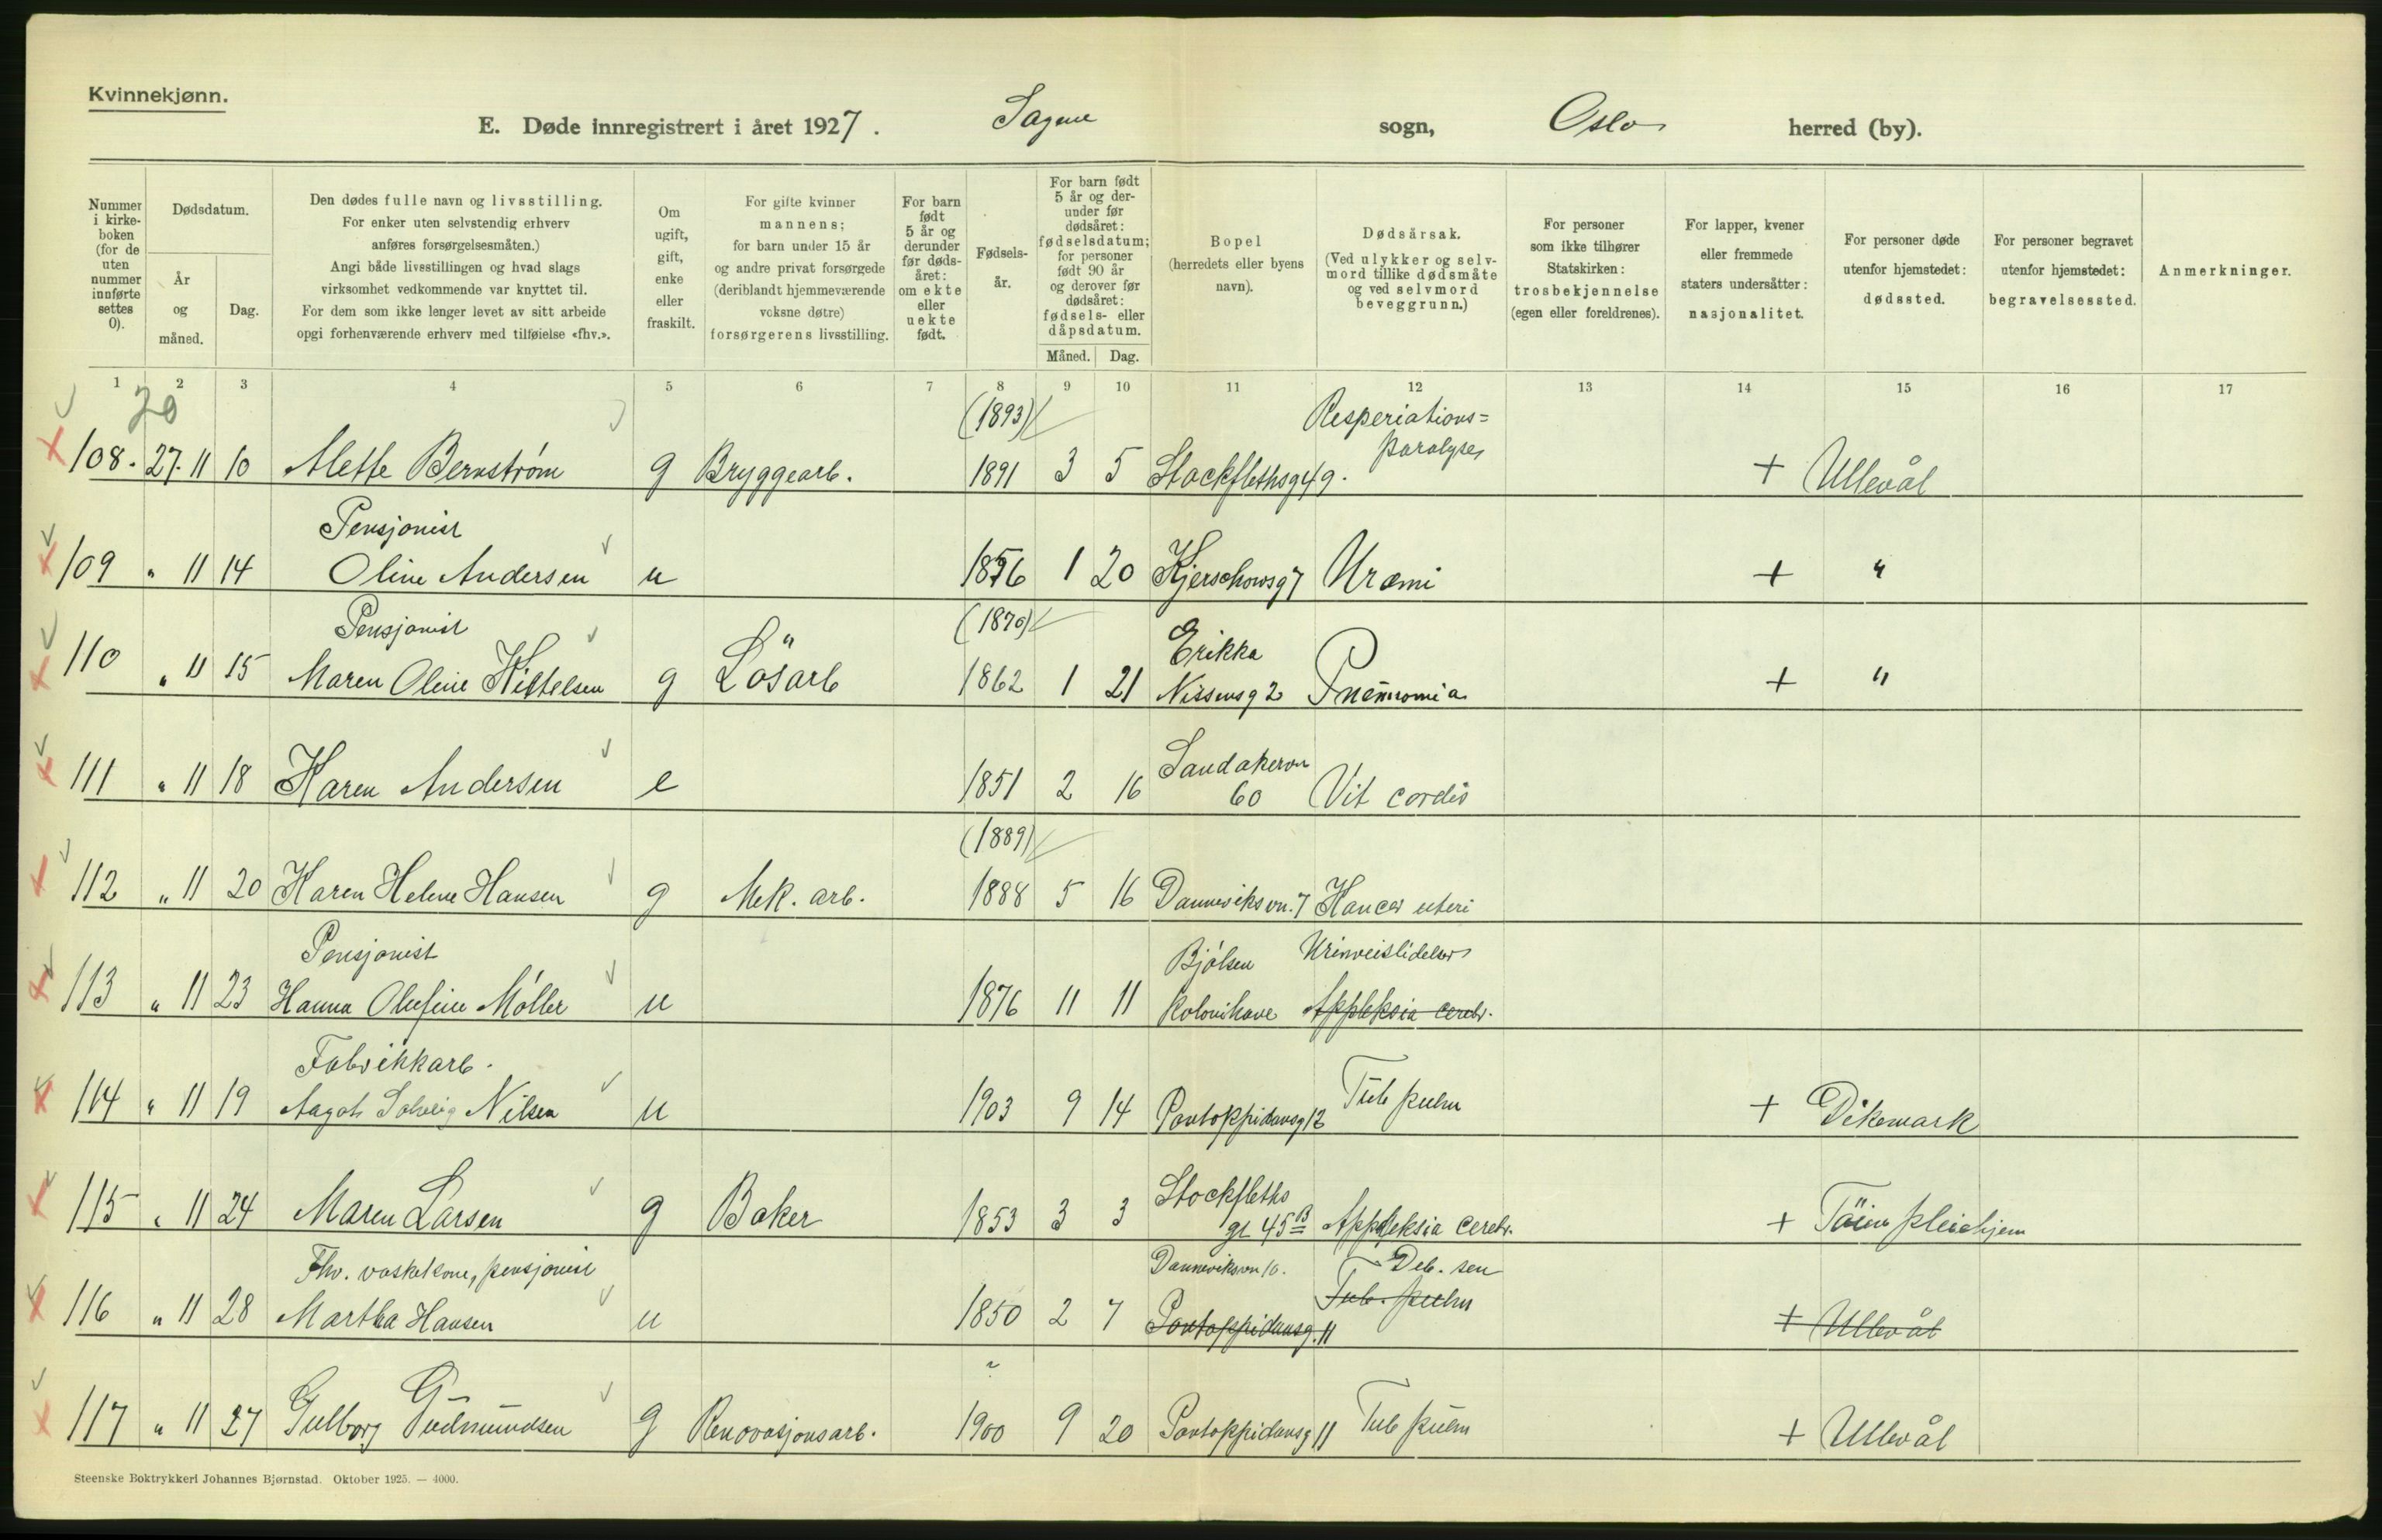 Kvinnekjønn.
E. Døde innregistrert i året 1927. Sagene sogn, Oslo herred (by).
Nummer i kirke-boken (for de uten nummer innførte settes 0).
Dødsdatum.
År og måned.
Dag.
Den dødes fulle navn og livsstilling.
For enker uten selvstendig erhverv
anføres forsørgelsesmåten.)
Angi både livsstillingen og hvad slags
virksomhet vedkommende var knyttet til.
For dem som ikke lenger levet av sitt arbeide
opgi forhenværende erhverv med tilføielse «fhv.».
Om ugift, gift, enke eller fraskilt.
For gifte kvinner
mannens;
for barn under 15 år
og andre privat forsørgede
(deriblandt hjemmeværende
voksne døtre)
forsørgerens livsstilling.
For barn født 5 år og derunder før døds-året: om ekte eller uekte født.
Fødsels-år.
For barn født 5 år og der-under før dødsåret: fødselsdatum; for personer født 90 år og derover før dødsåret: fødsels- eller dåpsdatum.
Måned. Dag.
Bopel
(herredets eller byens
navn).
Dødsårsak.
(Ved ulykker og selv-
mord tillike dødsmåte
og ved selvmord
beveggrunn.)
For personer
som ikke tilhører
Statskirken:
trosbekjennelse
(egen eller foreldrenes).
For lapper, kvener
eller fremmede
staters undersåtter:
nasjonalitet.
For personer døde
utenfor hjemstedet:
dødssted.
For personer begravet
utenfor hjemstedet:
begravelsessted.
Anmerkninger.
1 2 3 4 5 6 7 8 9 10 11 12 13 14 15 16 17
20
(1893) Resperiations=
paralyse
108. 27. 11 10 Alette Bernstrøm g Bryggearb. 1891 3 5 Stockflethsg 49. + Ullevål
Pensjonist
109 " 11 14 Oline Andersen u 1856 1 20 Kjerschowsg 7 Uræmi + "
Pensjonist (1870) Erikka
110 " 11 15 Maren Oline Kittelsen g Løsarb 1862 1 21 Nissensg 2 Pneumonia + "
Sandakervn
111 " 11 18 Karen Andersen e 1851 2 16 60 Vit cordis
(1889)
112 " 11 20 Karen Helene Hansen g Mek. arb. 1888 5 16 Danneviksvn. 7 Kancer uteri
Pensjonist Bjølsen Urinveislidelser
113 " 11 23 Hanna Olefine Møller u 1876 11 11 Kolonihave Appleksia cerebr.
Fabrikkarb.
114 " 11 19 Aagot Solveig Nilsen u 1903 9 14 Pontoppidansg 12 Tub pulm + Dikemark
Stockfleths
115 " 11 24 Maren Larsen g Baker 1853 3 3 gt 45B Appoleksia cerebr. + Tøien pleiehjem
Fhv. vaskekone, pensjonist Danneviksvn 10. Deb. sen
116 " 11 28 Martha Hansen u 1850 2 7 Pontoppidansg. 11 Tub. pulm + Ullevål
?
117 " 11 27 Gulborg Gudmundsen g Renovasjonsarb. 1900 9 20 Pontoppidansg 11 Tub pulm + Ullevål
Steenske Boktrykkeri Johannes Bjørnstad. Oktober 1925. — 4000.